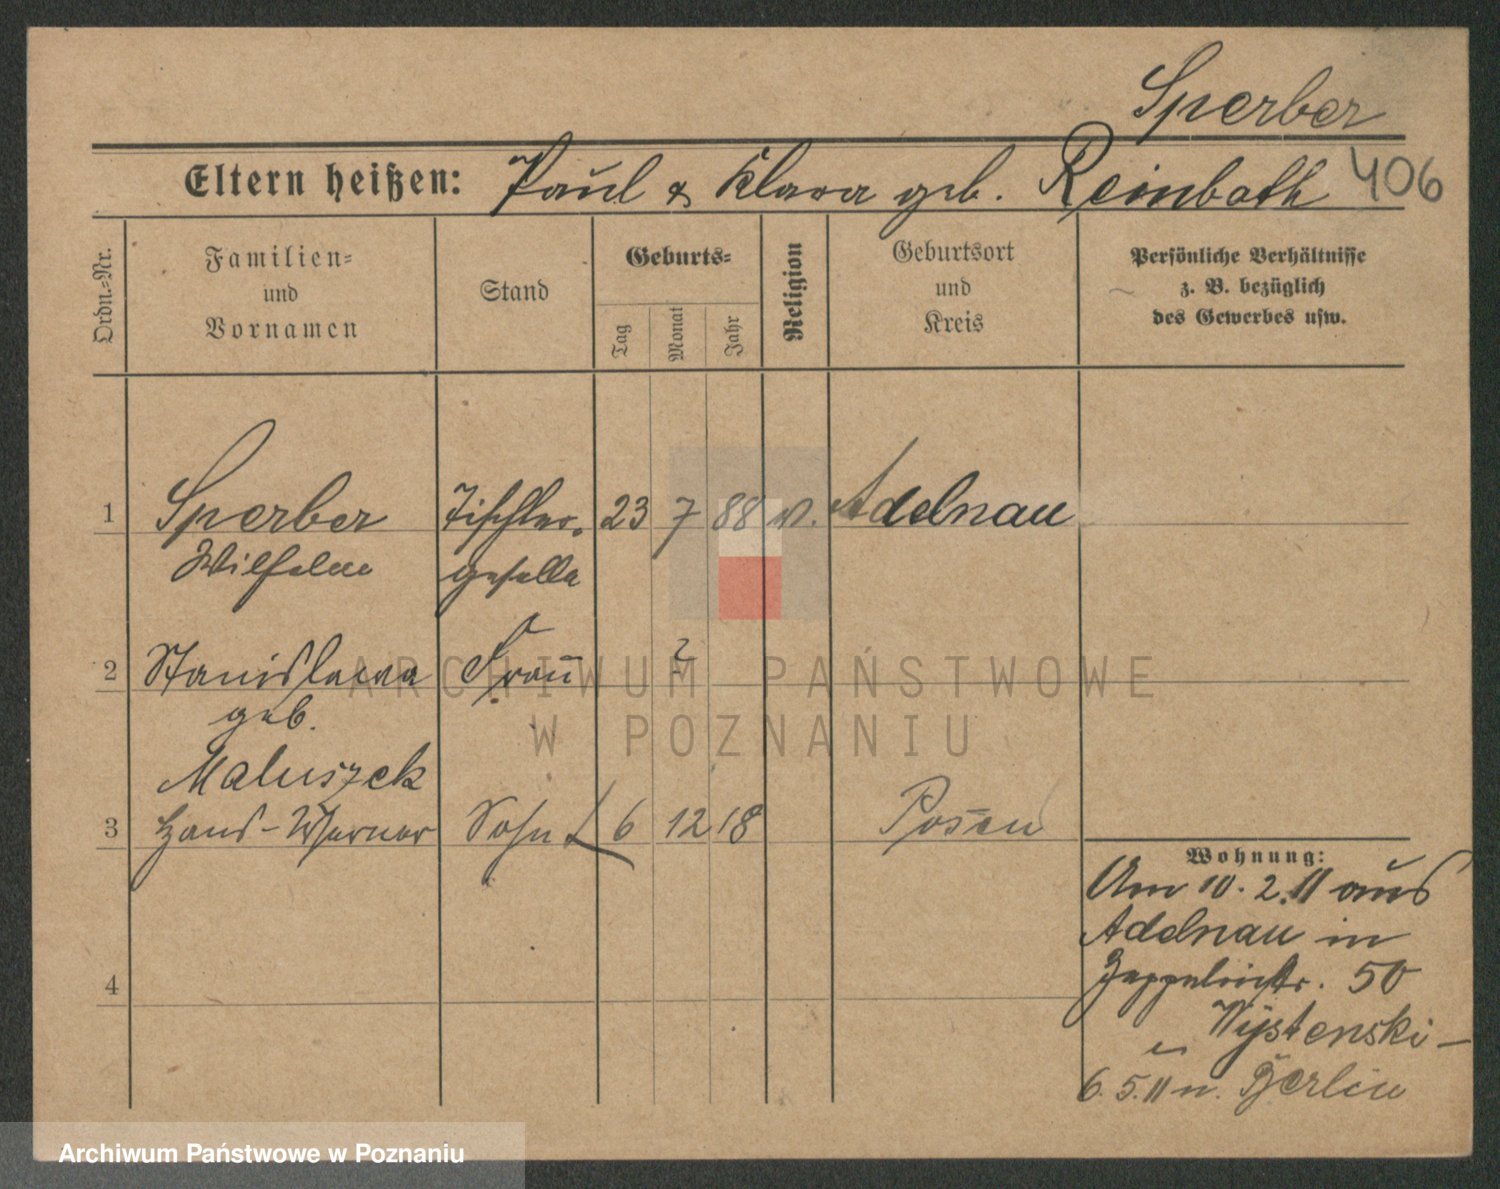 Sperber
Eltern heißen: Paul & Klara geb. Reinbath 406
Ordn.-Nr.
Familien-
und
Vornamen
Stand
Geburts-
Tag
Monat
Jahr
Religion
Geburtsort
und
Kreis
Persönliche Verhältnisse
z. B. bezüglich
des Gewerbes usw.
1 Sperber Tischler- 23 7 88 Adelnau
Wilhelm geselle
2 Stanislawa Frau ?
geb.
Maluszek
3 Hans-Werner Sohn 6 12 18 Posen
Wohnung:
Am 10.2.11 aus
Adelnau in
Zeppelinstr. 50
Wystenski
6.5.11 n. Berlin
4
ARCHIWUM PAŃSTWOWE
W POZNANIU
Archiwum Państwowe w Poznaniu